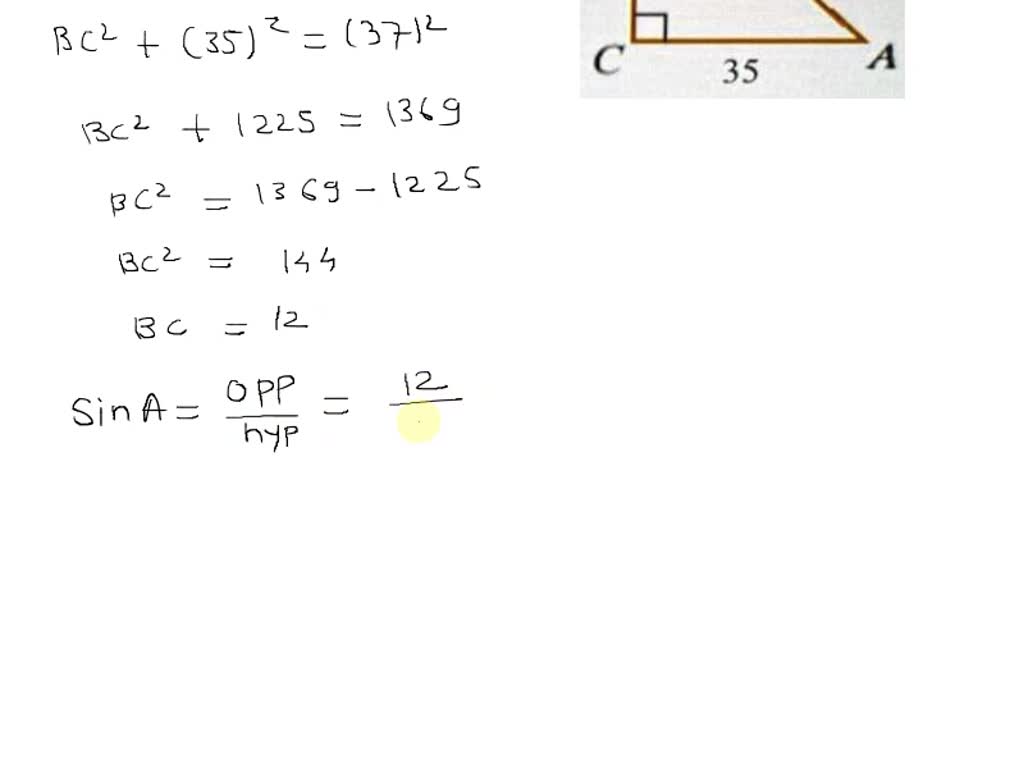 BC² + (35)² = (37)²
C
35
A
BC² + 1225 = 1369
BC² = 1369 - 1225
BC² = 144
BC = 12
Sin A = OPP/hyp = 12/